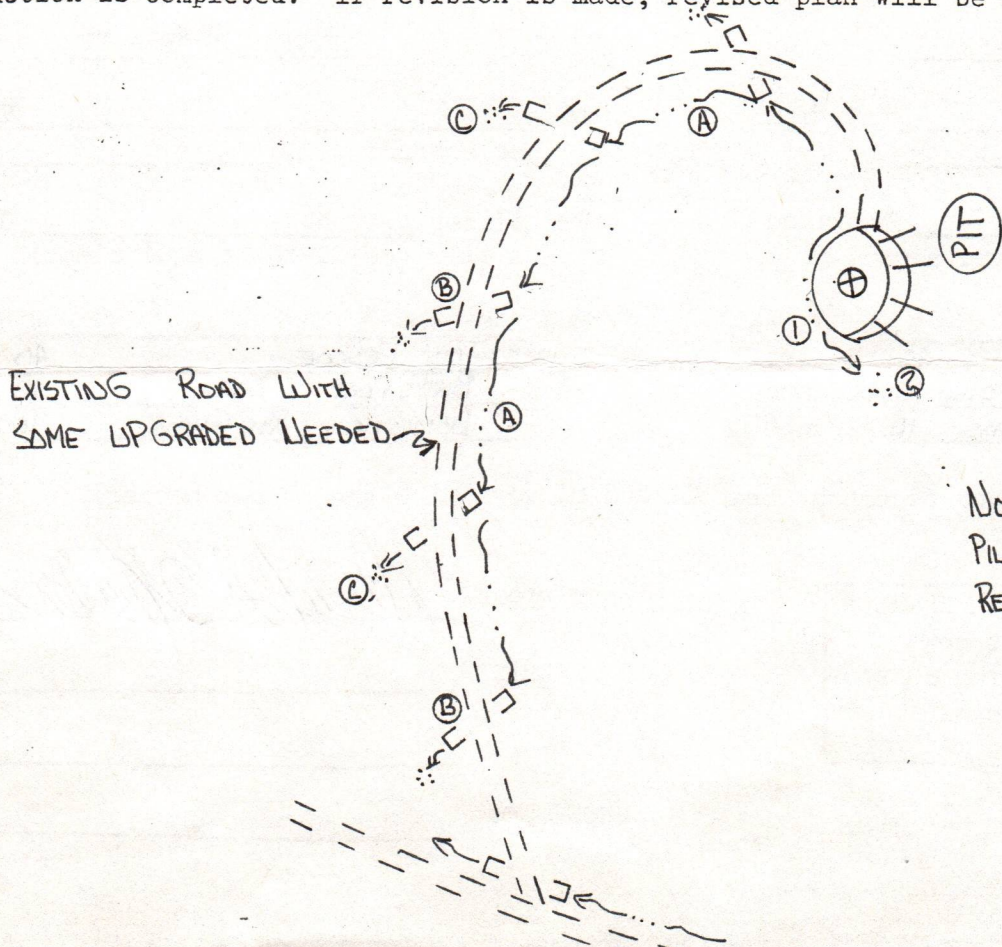 ction is completed. If revision is made, revised plan will be
C
A
PIT
B
1
2
EXISTING ROAD WITH
SOME UPGRADED NEEDED
A
C
B